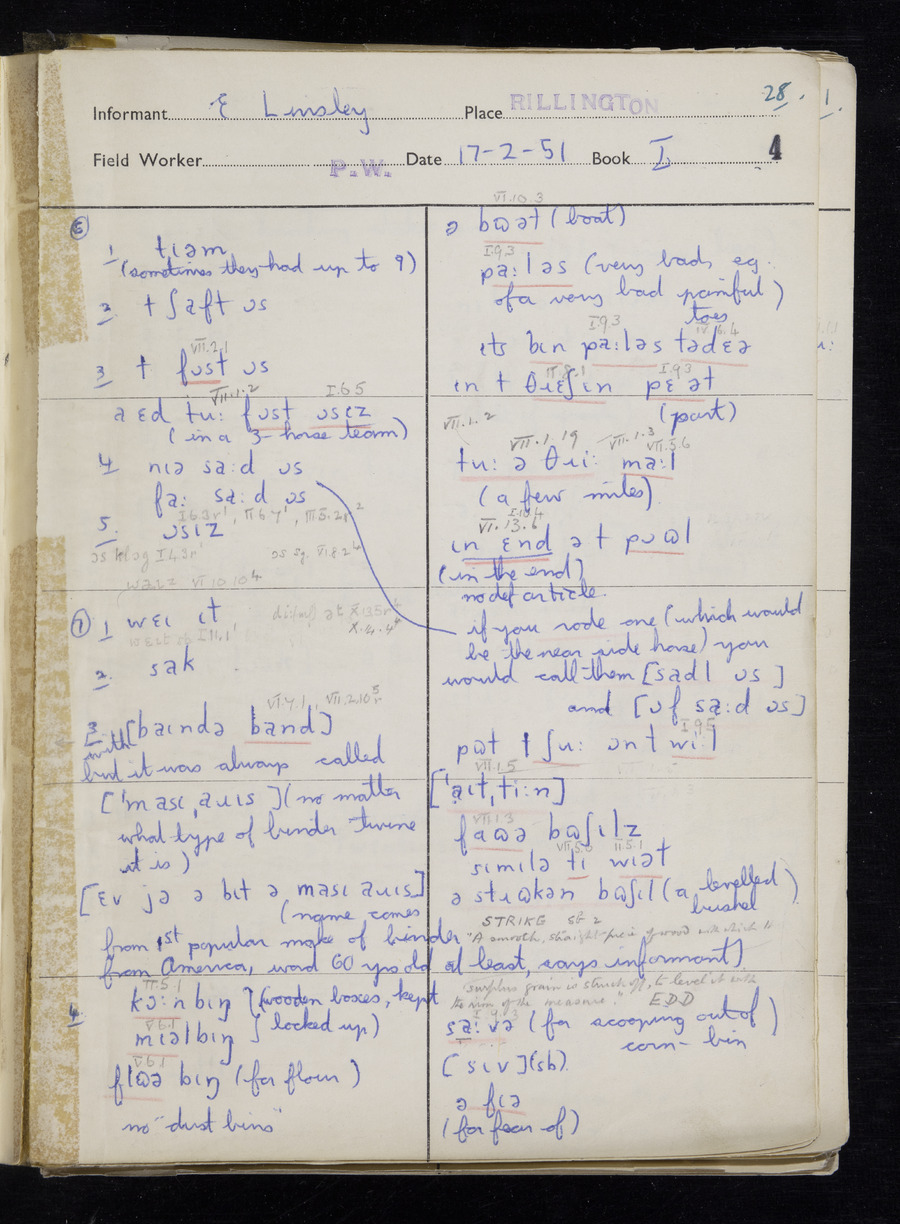 28.
1.
Informant E Linsley Place RILLINGTON
Field Worker P.W. Date 17-2-51 Book I 4
6
1 tiəm
(sometimes they had up to 9)
2 t ʃaft ɔs
VII.2.1
3 t fɔst ɔs
VII.1.2 I.6.5
a ɛd tu: fɔst ɔsɪz
(in a 3-horse team)
4 nɪə sa:d ɔs
fa: sa:d ɔs
5. ɔsɪz
7
1 wɛɪ ɪt
2. sak
VI.7.1, VII.2.10
3. [baɪndə band]
with
but it was always called
['masɪ,aɹɪs] (no matter
what type of binder twine
it is)
[ɛv jə ə bɪt ə masɪ aɹɪs]
(name comes
from 1st popular make of binder
from America, word 60 yrs old at least, says informant)
II.5.1
4. kɔ:nbɪŋ } (wooden boxes, kept
V.6.1
mɪəlbɪŋ locked up)
V.6.1
flɷə bɪŋ (for flour)
no "dust bins"
VI.10.3
ə bɷət (boat)
I.9.3
pa:ləs (very bad, eg.
of a very bad painful)
toes
I.9.3
ɪts bɪn pa:ləs tədɛə
I.9.3
ɪn t θɹɛʃɪn pɛət
(part)
VII.1.2
VII.1.19 VII.1.3 VII.5.6
tu: ə θɹi: ma:l
(a few miles)
VI.13.6
ɪn ɛnd ə t pɹɷl
(in the end)
no def article.
if you rode one (which would
be the near side horse) you
would call them [sadl ɔs]
and [ɔf sa:d ɔs]
I.9.5
pɷt t ʃu: ɔnt wi:l
VII.1.5
['aɪt,ti:n]
VII.1.3
faɷə bɷʃɪlz
II.5.1
sɪmɪlə tɪ wɪət
ə stɹɪɷkən bɷʃɪl (a levelled
bushel)
STRIKE sb 2
"A smooth, straight piece of wood with which the
surplus grain is struck off, to level it with
the rim of the measure." EDD
I.9.3
sa:və (for scooping out of
corn-bin)
[sɪv] (sb).
ə fɪə
(for fear of)